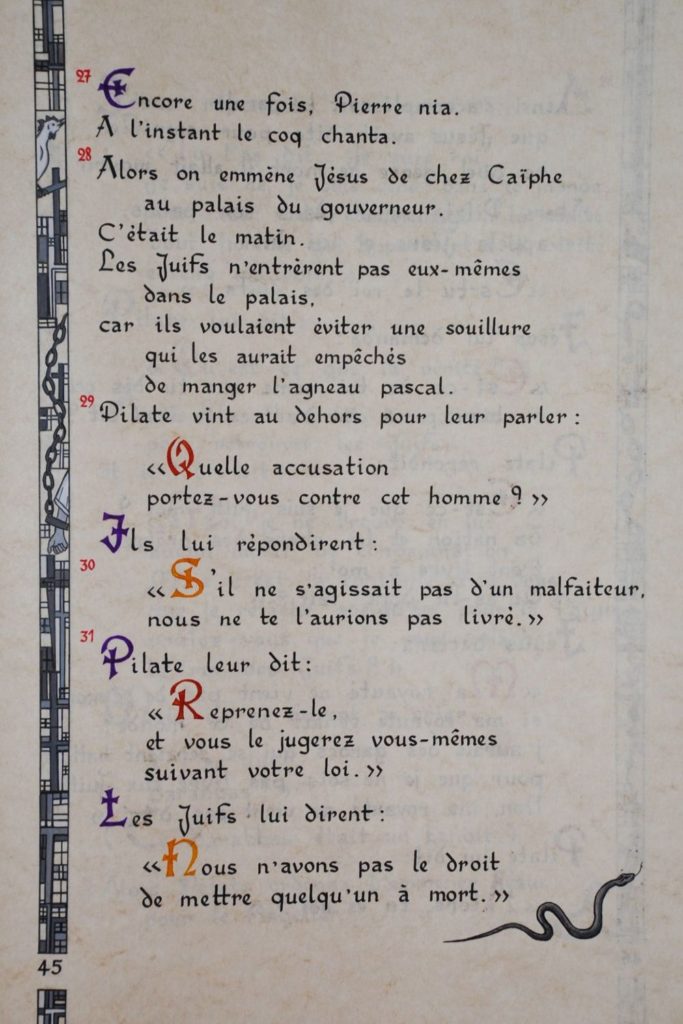 27 Encore une fois, Pierre nia.
A l'instant le coq chanta.
28 Alors on emmène Jésus de chez Caïphe
au palais du gouverneur.
C'était le matin.
Les Juifs n'entrèrent pas eux-mêmes
dans le palais,
car ils voulaient éviter une souillure
qui les aurait empêchés
de manger l'agneau pascal.
29 Pilate vint au dehors pour leur parler :
«Quelle accusation
portez-vous contre cet homme ? »
Ils lui répondirent :
30 «S'il ne s'agissait pas d'un malfaiteur,
nous ne te l'aurions pas livré. »
31 Pilate leur dit :
« Reprenez-le,
et vous le jugerez vous-mêmes
suivant votre loi. »
Les Juifs lui dirent :
«Nous n'avons pas le droit
de mettre quelqu'un à mort. »
45